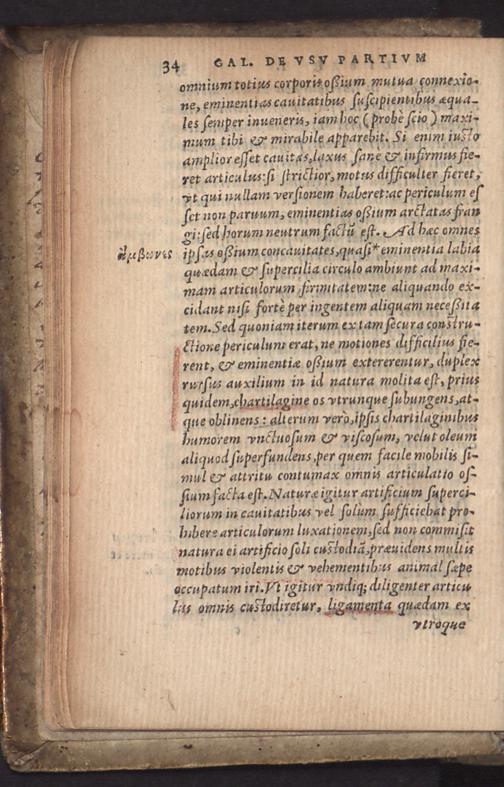 34 GAL. DE VSV PARTIVM
omnium totius corporis oßium mutua connexio-
ne, eminentias cauitatibus suscipientibus æqua-
les semper inueneris, iam hoc (probè scio) maxi-
mum tibi & mirabile apparebit. Si enim iusto
amplior esset cauitas, laxus sane & infirmus fie-
ret articulus: si strictior, motus difficulter fieret,
vt qui nullam versionem haberet: ac periculum es
set non paruum, eminentias oßium arctatas fran
gi: sed horum neutrum factũ est. Ad hæc omnes
ἄμβωνες
ipsas oßium concauitates, quasi * eminentia labia
quædam & supercilia circulo ambiunt ad maxi-
mam articulorum firmitatem: ne aliquando ex-
cidant nisi fortè per ingentem aliquam necessita
tem. Sed quoniam iterum ex tam secura constru-
ctione periculum erat, ne motiones difficilius fie-
rent, & eminentiæ oßium extererentur, duplex
rursus auxilium in id natura molita est, prius
quidem, chartilagine os vtrunque subungens, at-
que oblinens: alterum verò, ipsis chartilaginibus
humorem vnctuosum & viscosum, velut oleum
aliquod superfundens, per quem facile mobilis si-
mul & attritu contumax omnis articulatio os-
sium facta est. Naturæ igitur artificium superci-
liorum in cauitatibus vel solùm sufficiebat pro-
hibere articulorum luxationem, sed non commisit
natura ei artificio soli custodiã, præuidens multis
motibus violentis & vehementibus animal sæpe
occupatum iri. Vt igitur vndiq; diligenter articu
lus omnis custodiretur, ligamenta quædam ex
vtroque